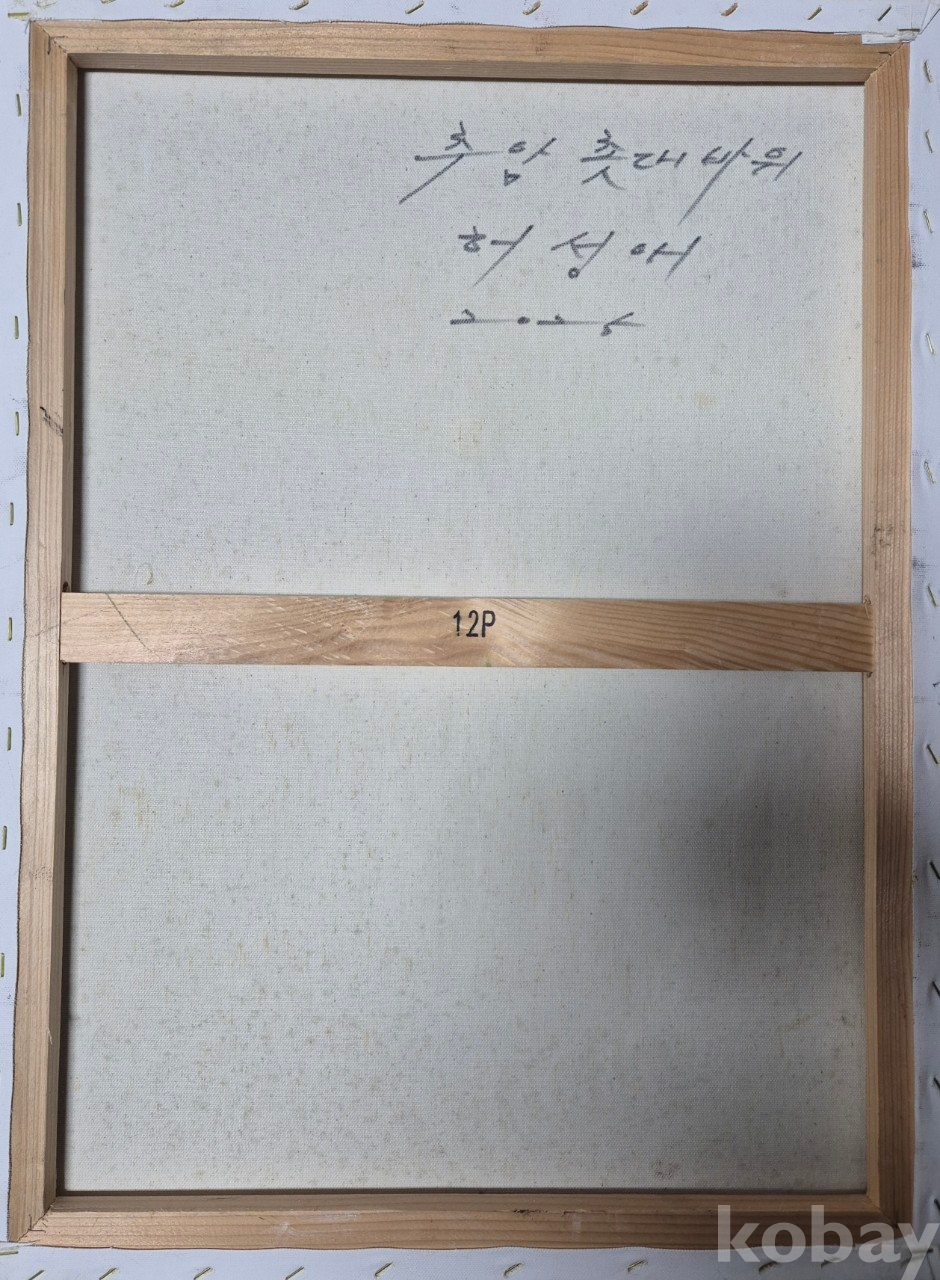 추암 촛대바위
허성애
2025
12P
kobay